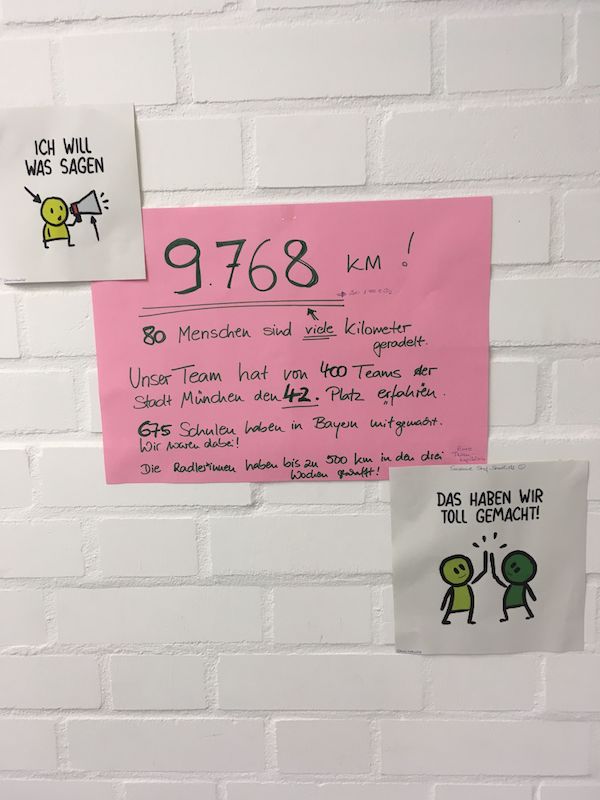 ICH WILL
WAS SAGEN
9.768 KM!
80 Menschen sind viele Kilometer
geradelt.
Unser Team hat von 400 Teams der
Stadt München den 42. Platz "erfahren".
675 Schulen haben in Bayern mitgemacht.
Wir waren dabei!
Die Radler*innen haben bis zu 500 km in den drei
Wochen geschafft!
DAS HABEN WIR
TOLL GEMACHT!